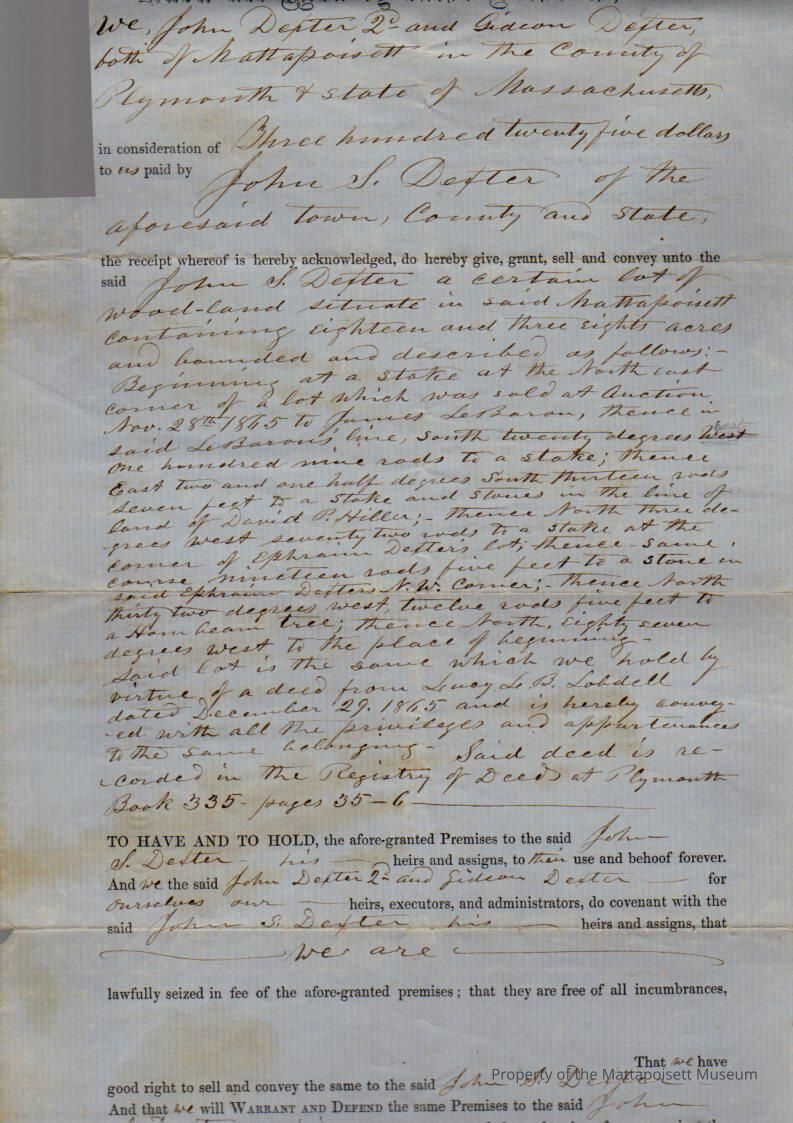 We, John Dexter 2d and Gideon Dexter,
both of Mattapoisett in the County of
Plymouth & State of Massachusetts,
in consideration of Three hundred twenty five dollars
to us paid by
John S. Dexter of the
aforesaid town, County and State,
the receipt whereof is hereby acknowledged, do hereby give, grant, sell and convey unto the
said John S. Dexter a certain lot of
wood-land situate in said Mattapoisett
containing eighteen and three eights acres
and bounded and described as follows:-
Beginning at a stake at the North east
corner of a lot which was sold at Auction
Nov. 28th 1865 to James LeBaron, thence in
said LeBarons line, South twenty degrees West
one hundred nine rods to a stake; thence
East two and one half degrees South thirteen rods
seven feet to a stake and stones in the line of
land of David P. Hiller;- thence North three de-
grees west seventy two rods to a stake at the
corner of Ephraim Dexter's lot; thence same
course nineteen rods five feet to a stone in
said Ephraim Dexters N.W. Corner;- thence North
thirty two degrees west, twelve rods five feet to
a Horn beam tree; thence North, Eighty seven
degrees west to the place of beginning-
Said lot is the same which we hold by
virtue of a deed from Lucy Le B. Lobdell
dated December 29. 1865 and is hereby convey-
-ed with all the privileges and appurtenances
to the same belonging- Said deed is re-
-corded in the Registry of Deeds at Plymouth
Book 335- pages 35-6
TO HAVE AND TO HOLD, the afore-granted Premises to the said John
S. Dexter - his heirs and assigns, to their use and behoof forever.
And we the said John Dexter 2d and Gideon Dexter for
ourselves our heirs, executors, and administrators, do covenant with the
said John S. Dexter his heirs and assigns, that
we are
lawfully seized in fee of the afore-granted premises; that they are free of all incumbrances,
That we have
good right to sell and convey the same to the said John S. Dexter
And that we will WARRANT AND DEFEND the same Premises to the said John
Property of the Mattapoisett Museum